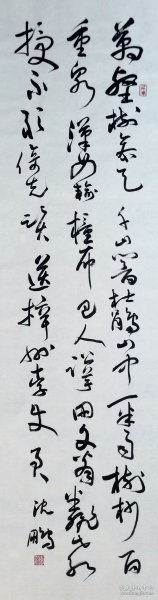 萬壑樹參天千山響杜鵑山中一半雨樹杪百
重泉漢女輸橦布巴人訟芋田文翁翻教
授不敢倚先賢送梓州李使君沈鵬